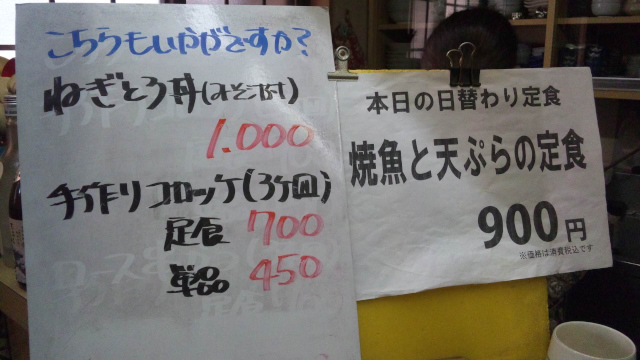 こちらもいかがですか?
ねぎとろ丼(みそ汁付)
1.000
手作りコロッケ(3ヶ皿)
定食 700
単品 450
本日の日替わり定食
焼魚と天ぷらの定食
900円
※価格は消費税込です